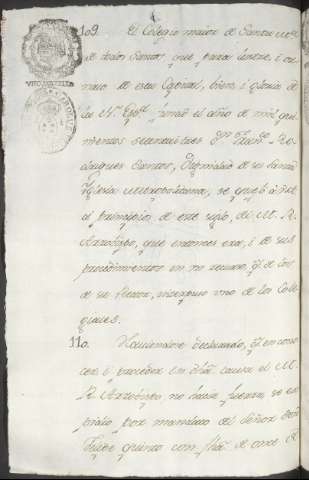 109. El Colegio maior de Santa Ma
de todos Santos, que para lustre, i or
nato de esta Capital, bien, i gloria de
la Na. Espa. fundó el año de mil qui
nientos setenta i tres Dn. Franco. Ro
driguez Santos, Dignidad de su Santa
Iglesia Metropolitana, se quejó à
el principio de este siglo, de M. R.
Arzobispo, que entonces era, i de sus
procedimientos en no
de su Rector, i uno de los Cole
giales.
110. Haviendose declarado, q. en cono
cer, i proceder en dha. causa el M.
R. Arzobispo, no hacia fuerza, se ex
pidio por mandato del Señor Don
Felipe quinto con fha. de once de